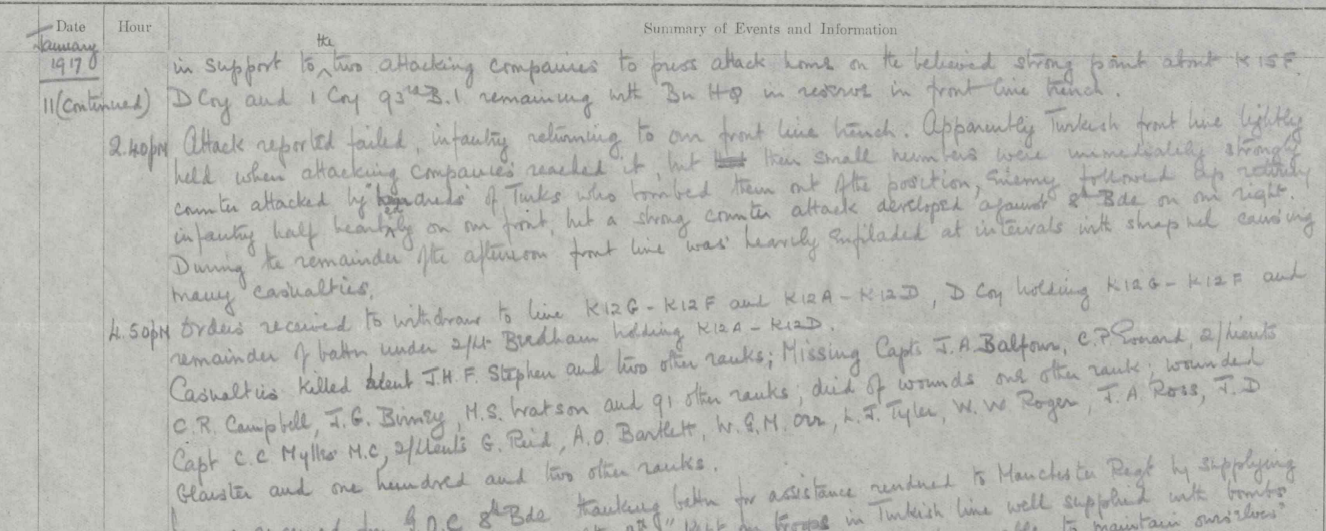 Date Hour Summary of Events and Information
January
1917
the
in support to ^ two attacking companies to press attack home on the believed strong point about K15F.
11 (continued) D Coy and 1 Coy 93rd B.I remaining with Bn HQ in reserve in front line trench.
2.40pm Attack reported failed, infantry returning to our front line trench. Apparently Turkish front line lightly
held when attacking companies reached it, but their small numbers were immediately strongly
counter attacked by hundreds of Turks who bombed them out of the position, enemy followed up
infantry half heartedly on our front, but a strong counter attack developed against 8th Bde on our right.
During the remainder of the afternoon front line was heavily enfiladed at intervals with shrapnel causing
many casualties.
4.50pm Orders received to withdraw to line K12G - K12F and K12A - K12D, D Coy holding K12G - K12F and
remainder of battn under 2/Lt Bredham holding K12A - K12D.
Casualties Killed Lieut J.H.F. Stephen and two other ranks; Missing Capts J.A. Balfour, C.P. 2/Lieuts
C.R. Campbell, J.G. Binney, H.S. Watson and 91 other ranks; died of wounds one other rank; wounded
Capt C.C Mylles M.C, 2/Lieuts G. Reid, A.O. Bartlett, W.G.M. Orr, L.J. Tyler, W.W Roger, J.A Ross, J.D
Glauster and one hundred and two other ranks.
received G.O.C 8th Bde thanking battn for assistance rendered to Manchester Regt by supplying
troops in Turkish line well supplied with bombs
to maintain ourselves"